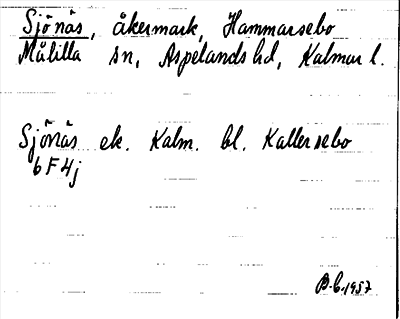 Sjönäs, åkermark, Hammarsebo
Målilla sn, Aspelands hd, Kalmar l.
Sjönäs ek. Kalm. bl. Kallersebo
6 F 4j
B.C. 1957